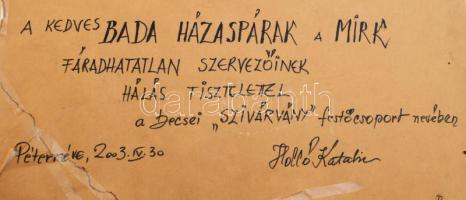 A KEDVES BADA HÁZASPÁRAK A MIRK
FÁRADHATATLAN SZERVEZŐINEK
HÁLÁS TISZTELETTEL
a becsei "SZIVÁRVÁNY" festőcsoport nevében
Péterréve, 2003. IV. 30
Holló Katalin
darabanth